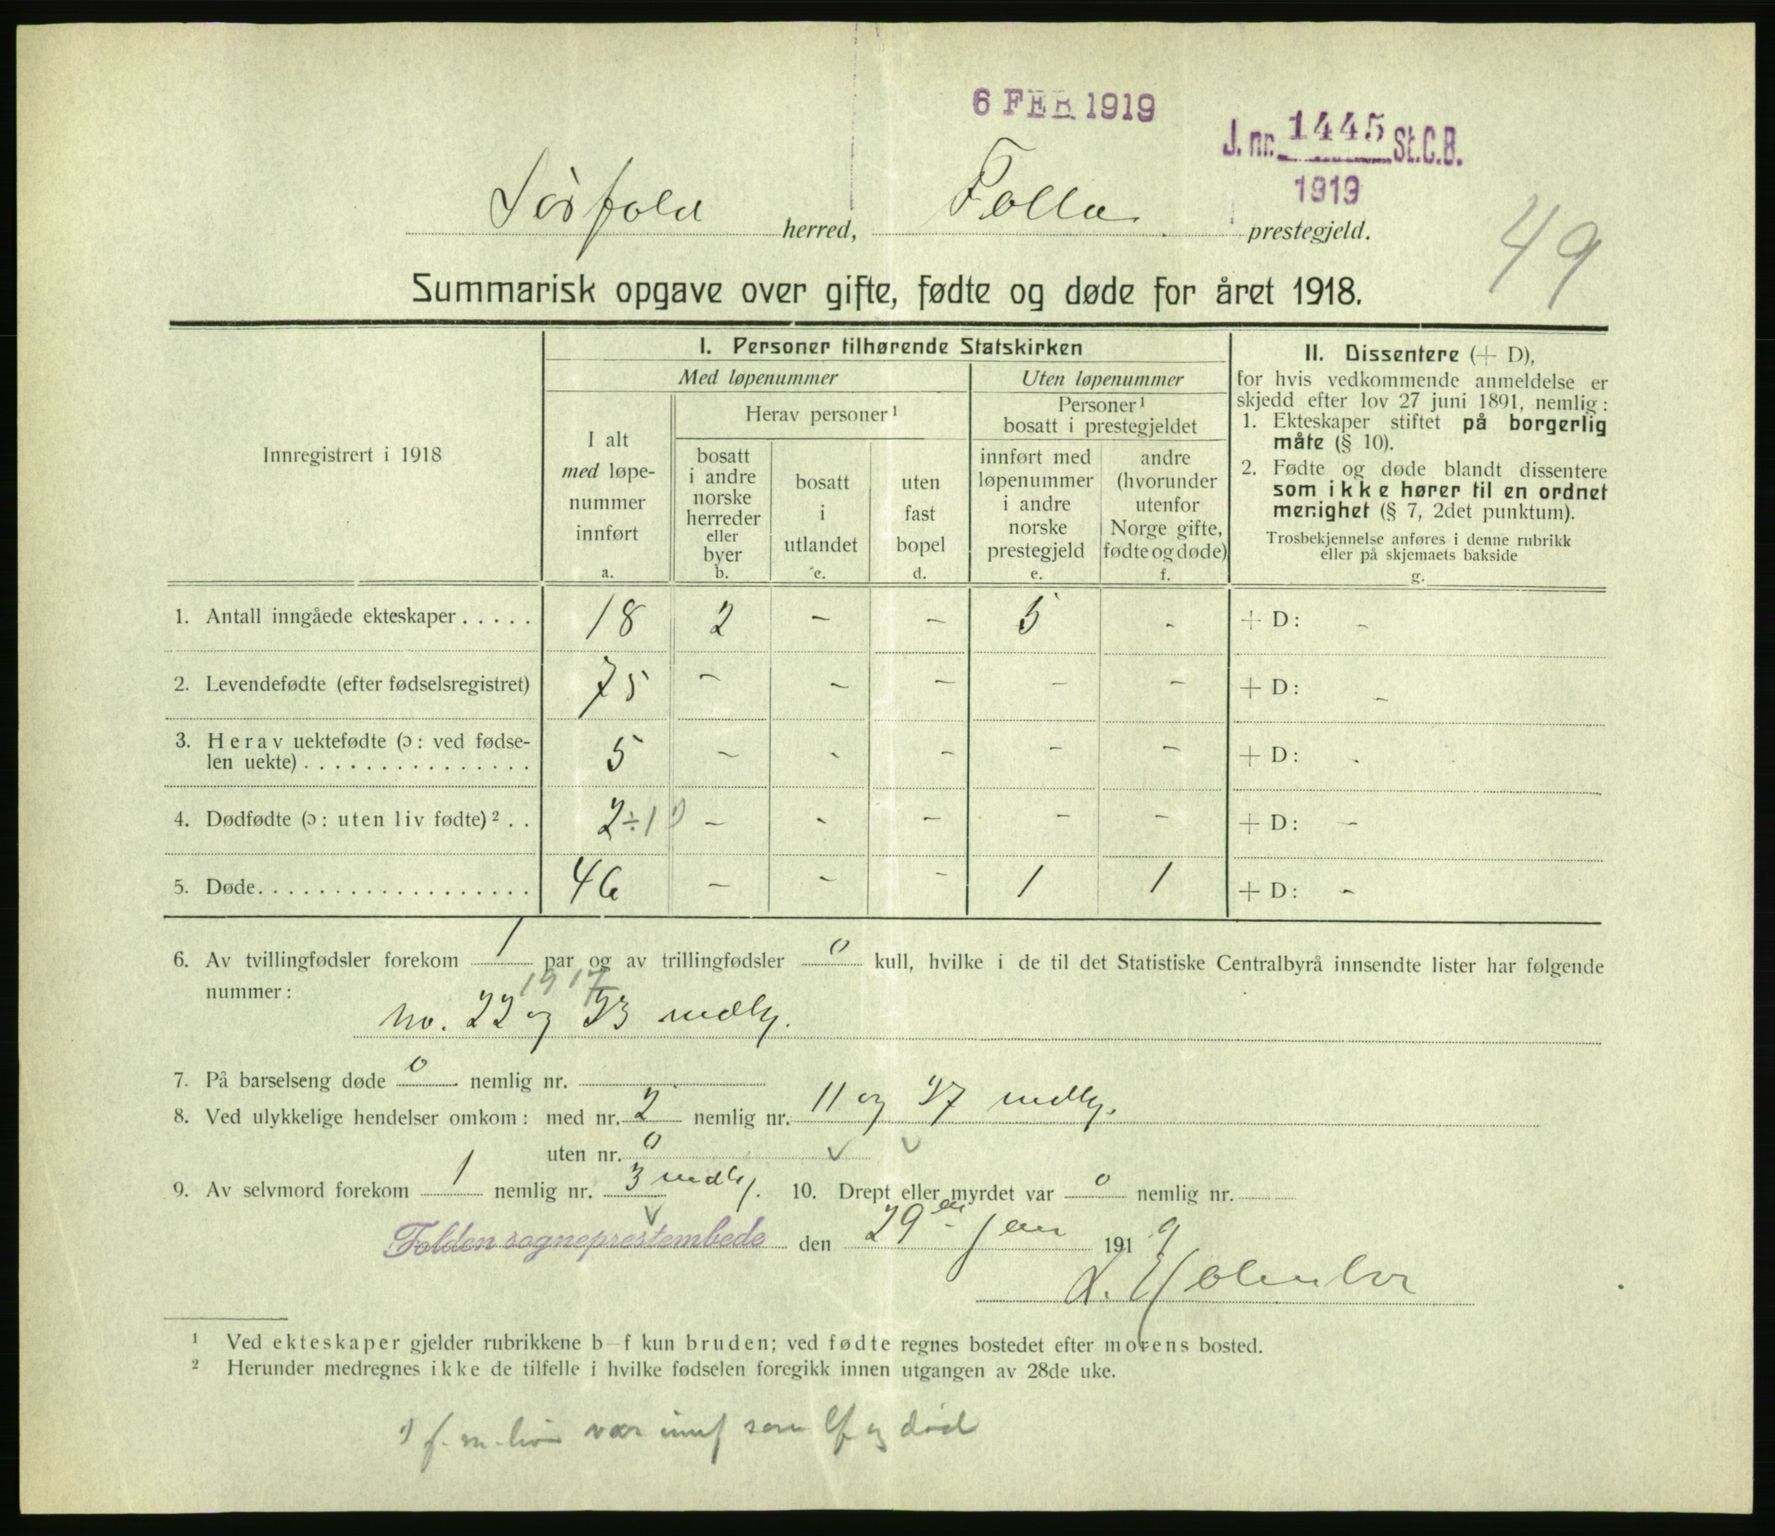 6 FEB 1919
J. nr. 1445 St.C.B.
1919
49
Sörfold herred, Folla prestegjeld.
Summarisk opgave over gifte, fødte og døde for året 1918.
Innregistrert i 1918
I. Personer tilhørende Statskirken
Med løpenummer
Uten løpenummer
I alt
med løpe-
nummer
innført
a.
Herav personer ¹
bosatt
i andre
norske
herreder
eller
byer
b.
bosatt
i
utlandet
c.
uten
fast
bopel
d.
Personer ¹
bosatt i prestegjeldet
innført med
løpenummer
i andre
norske
prestegjeld
e.
andre
(hvorunder
utenfor
Norge gifte,
fødte og døde)
f.
II. Dissentere (+ D),
for hvis vedkommende anmeldelse er
skjedd efter lov 27 juni 1891, nemlig:
1. Ekteskaper stiftet på borgerlig
måte (§ 10).
2. Fødte og døde blandt dissentere
som ikke hører til en ordnet
menighet (§ 7, 2det punktum).
Trosbekjennelse anføres i denne rubrikk
eller på skjemaets bakside
g.
1. Antall inngåede ekteskaper ..... 18 2 – – 5 - + D: –
2. Levendefødte (efter fødselsregistret) 75 – – – – – + D: –
3. Herav uektefødte (ɔ: ved fødse-
len uekte) ............... 5 – - – – – + D: -
4. Dødfødte (ɔ: uten liv fødte) ² .. 2 ÷1 ¹) – - – – – + D: –
5. Døde.................. 46 – – – 1 1 + D: –
6. Av tvillingfødsler forekom 1 par og av trillingfødsler 0 kull, hvilke i de til det Statistiske Centralbyrå innsendte lister har følgende
nummer:
1917
No. 22 og 23 mdlg.
7. På barselseng døde 0 nemlig nr.
8. Ved ulykkelige hendelser omkom: med nr. 2 nemlig nr. 11 og 37 mdlg.
uten nr. 0
9. Av selvmord forekom 1 nemlig nr. 3 mdlg. 10. Drept eller myrdet var 0 nemlig nr.
Folden sogneprestembede den 29en jan 1919
¹ Ved ekteskaper gjelder rubrikkene b–f kun bruden; ved fødte regnes bostedet efter morens bosted.
² Herunder medregnes ikke de tilfelle i hvilke fødselen foregikk innen utgangen av 28de uke.
¹) f. m. liv var innf som lf og død